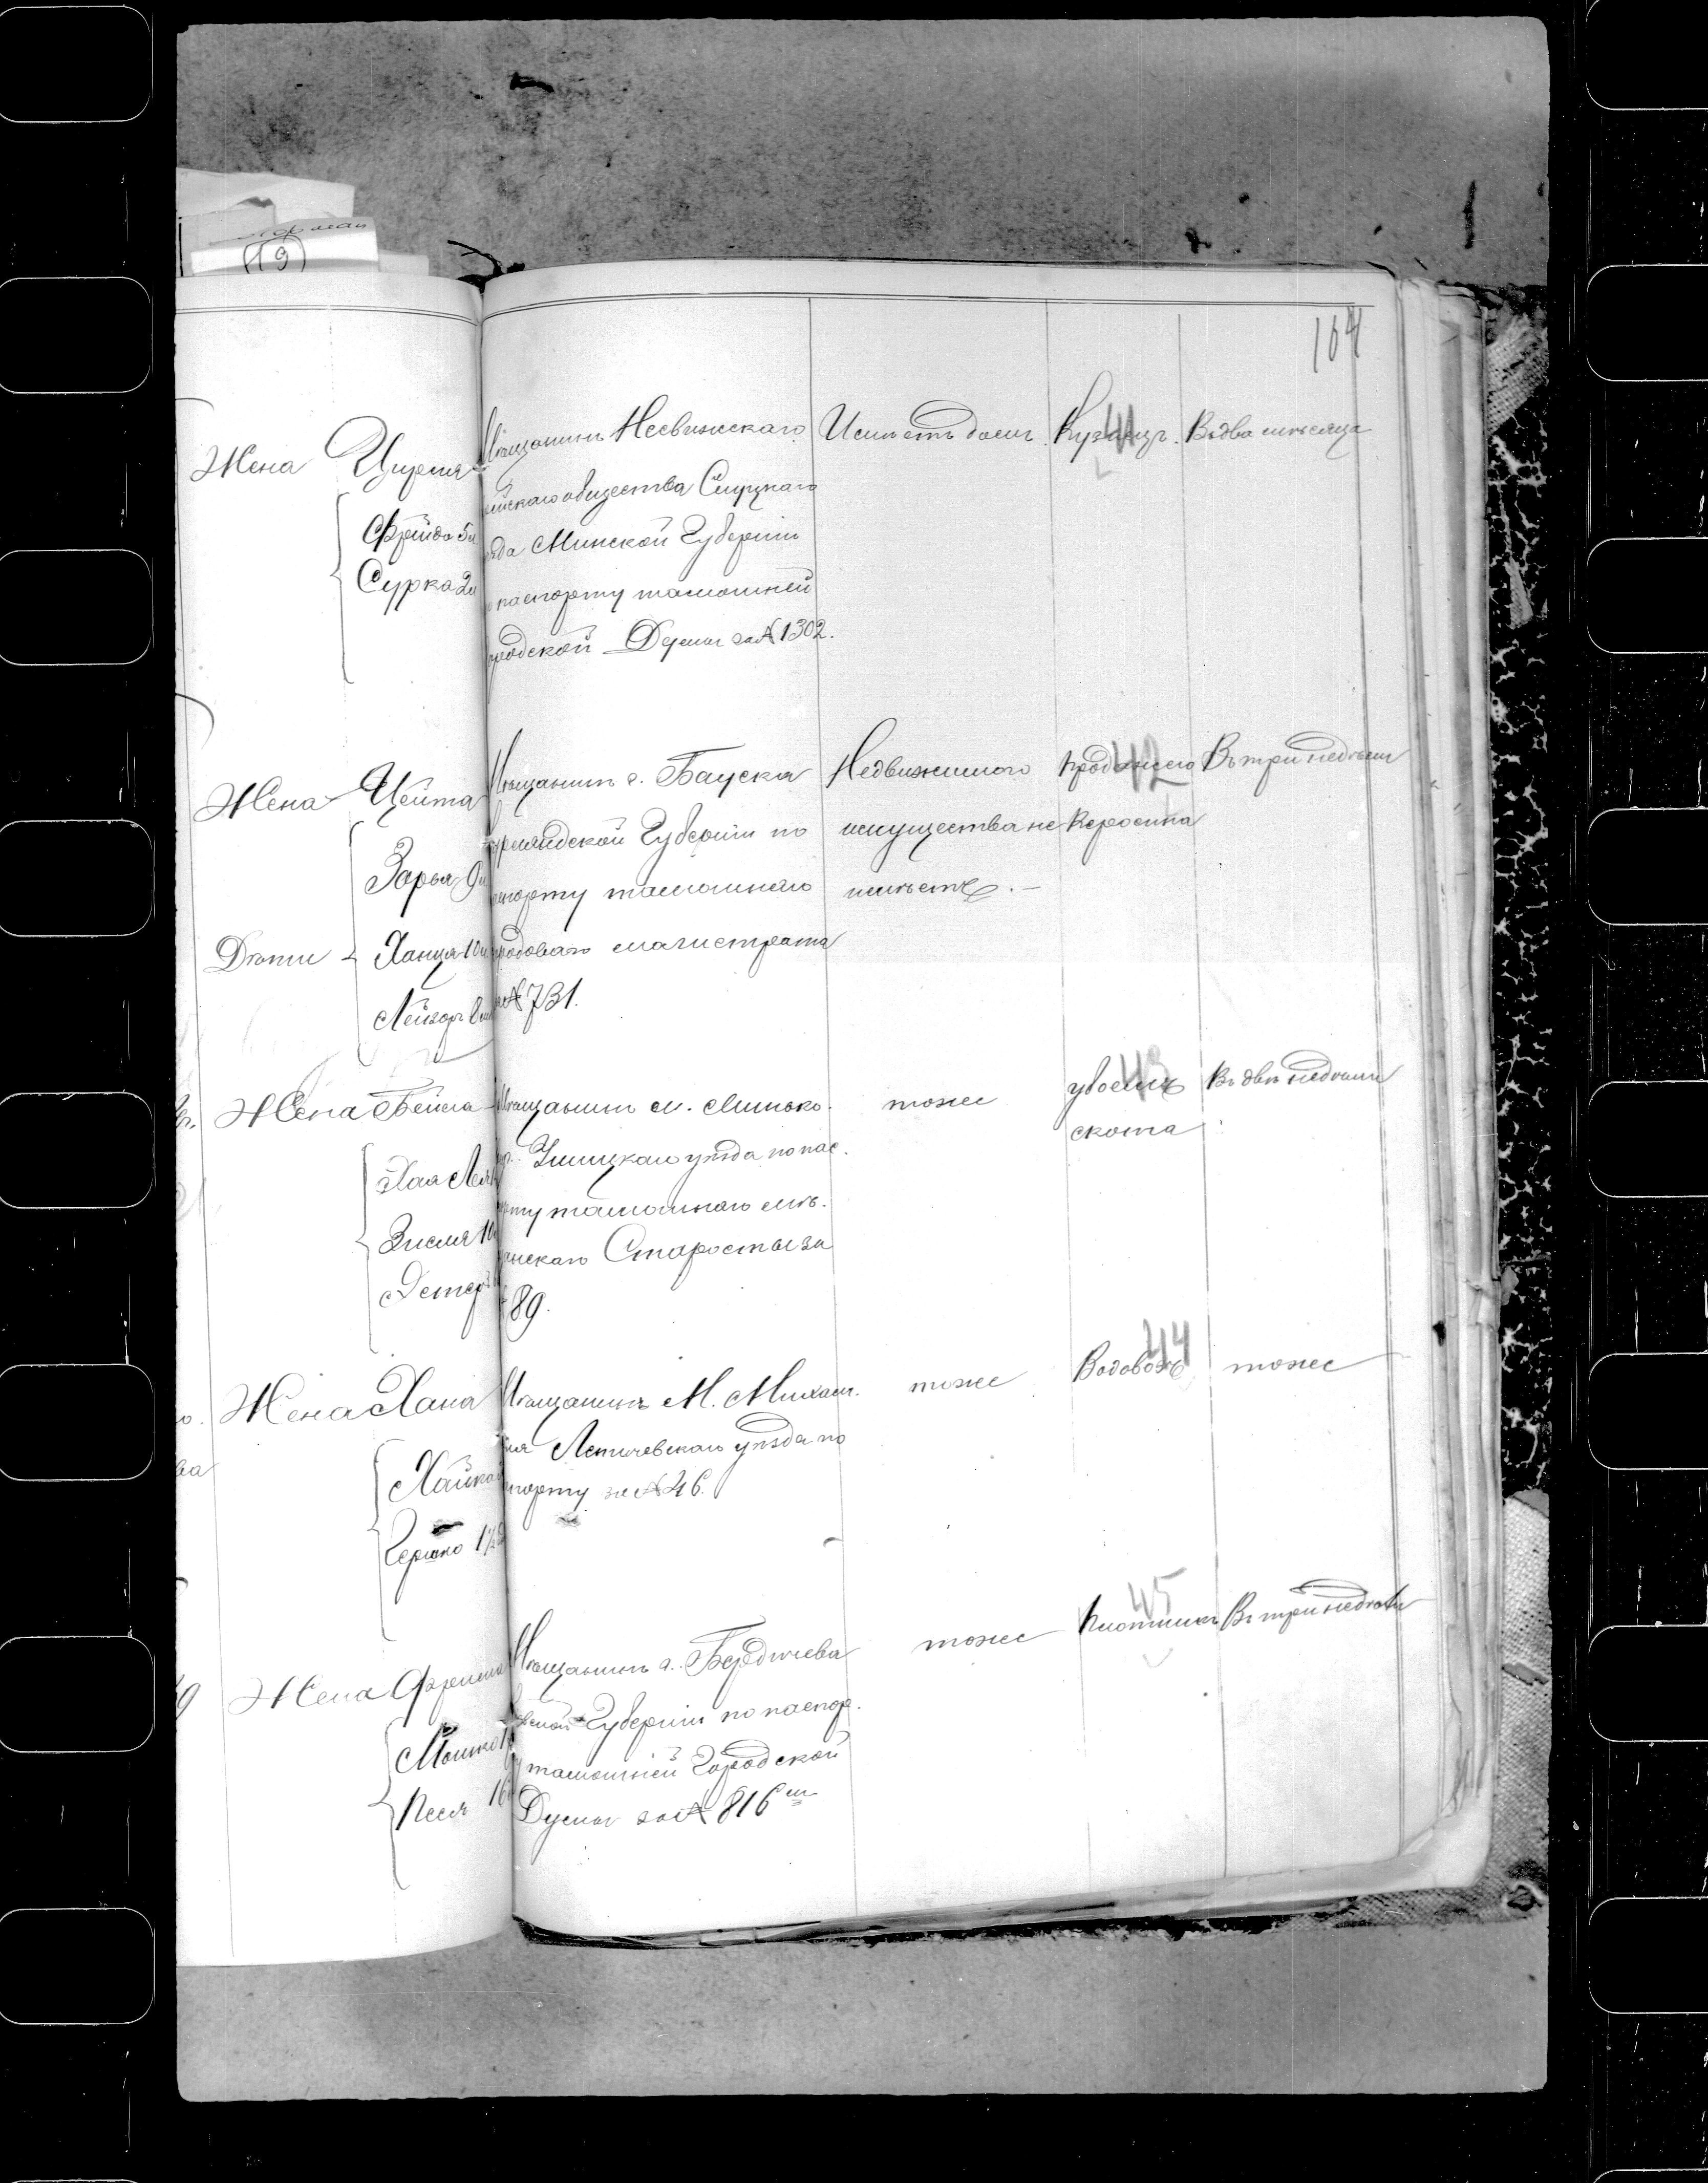 19
104
Жена Ципля
Фрейда 5 л
Сурка 2 л
Мѣщанинъ Несвижскаго
ейскаго общества Слуцкаго
ѣзда Минской Губерніи
о паспорту тамошней
ородской Думы за № 1302.
Имѣетъ домъ.
Кузнецъ.
41
Въ два мѣсяца
Жена Цейта
Дѣти
Зарья 9 л
Ханця 10 л
Лейзоръ
Мѣщанинъ г. Бауска
урляндской Губерніи по
аспорту тамошняго
ородоваго магистрата
за № 731.
Недвижимого
имущества не
имѣетъ. —
42
Керосина
Въ три недѣли
Жена Бейла
Хая Лея
Зисля 10
Эстеръ
Мѣщанинъ м. Минько-
Ушицкаго уѣзда по пас-
орту тамошняго мѣ-
анскаго Старосты за
89.
тоже
43
скота
Въ двѣ недѣли
Жена Хана
Хайка
Гершко 1½
Мѣщанинъ М. Михам-
Летичевскаго уѣзда по
спорту за № 46.
тоже
44
Водовозъ
тоже
Жена
Мошко
Песя 16
Мѣщанинъ г. Бердичева
Губерніи по паспор-
у тамошней Городской
Думы за № 816
тоже
45
Плотникъ
Въ три недѣли